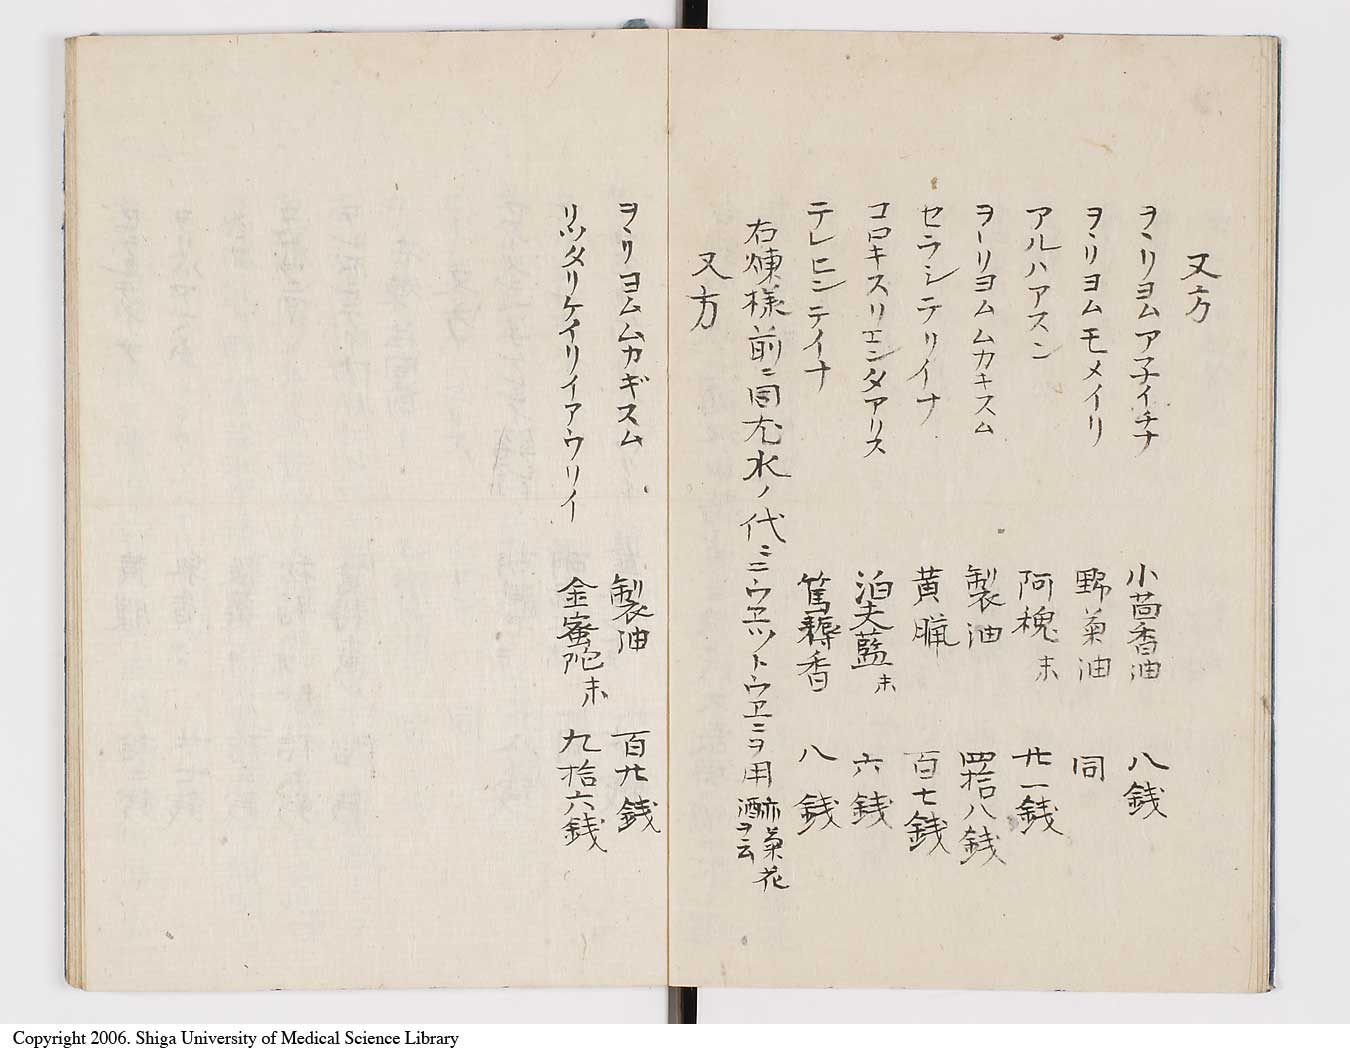 又方
ヲヽリヨムアヲ子イチナ 小茴香油 八銭
ヲヽリヨムモメイリ 野菊油 同
アルハアスン 阿槐末 廿一銭
ヲーリヨムムカキスム 製油 四拾八銭
セラシテリイナ 黄臘 百七銭
コロキスリエンタアリス 泊夫藍末 六銭
テレヒンテイナ 篤耨香 八銭
右煉様前ニ同尤水ノ代ミニウヱツトウヱニヲ用 菊花酢ヲ云
又方
ヲヽリヨムムカギスム 製油 百廿銭
リツタリケイリイアウリイ 金蜜陀末 九拾六銭
Copyright 2006. Shiga University of Medical Science Library